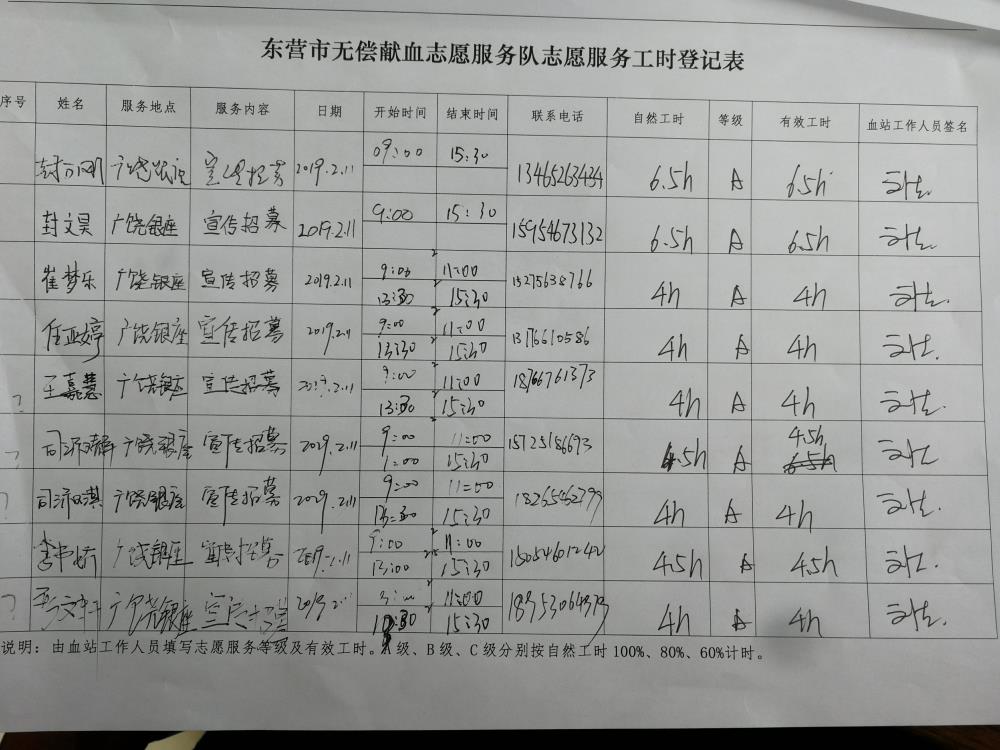 东营市无偿献血志愿服务队志愿服务工时登记表
序号 姓名 服务地点 服务内容 日期 开始时间 结束时间 联系电话 自然工时 等级 有效工时 血站工作人员签名
广饶银座 宣传招募 2019.2.11 09:00 15:30 13465263434 6.5h A 6.5h
封文昊 广饶银座 宣传招募 2019.2.11 9:00 15:30 15954673132 6.5h A 6.5h
崔梦乐 广饶银座 宣传招募 2019.2.11 9:00 11:00 15275638766 4h A 4h
13:30 15:30
任亚婷 广饶银座 宣传招募 2019.2.11 9:00 11:00 4h A 4h
13:30 15:30
王嘉慧 广饶银座 宣传招募 2019.2.11 9:00 11:00 18766761373 4h A 4h
13:30 15:30
广饶银座 宣传招募 2019.2.11 9:00 11:00 15725186693 4.5h A 4.5h
1:00 15:30
广饶银座 宣传招募 2019.2.11 9:00 11:00 4h A 4h
13:30 15:30
广饶银座 宣传招募 2019.2.11 9:00 11:00 15054601242 4.5h A 4.5h
13:00 15:30
广饶银座 宣传招募 11:00 4h A 4h
15:30
说明：由血站工作人员填写志愿服务等级及有效工时。A级、B级、C级分别按自然工时100%、80%、60%计时。